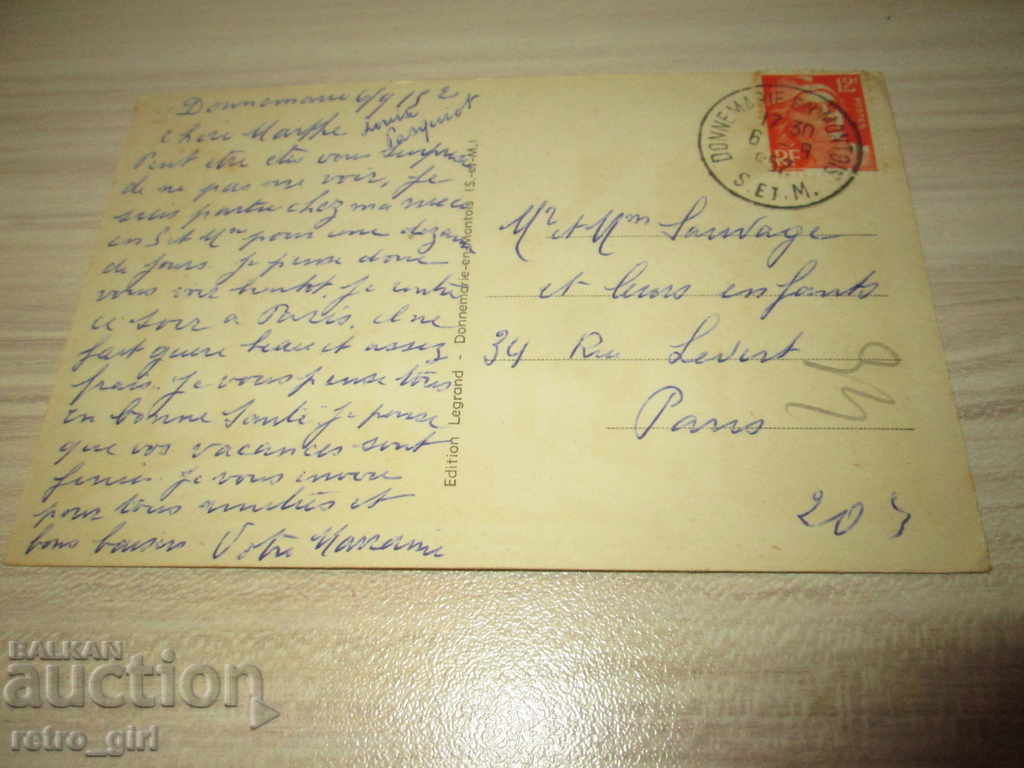 Donnemarie 6/9/52
Chère Marthe
Peut etre etes vous surprise
de ne pas me voir, Je
suis partie chez ma niece
en S et M pour une dizaine
de jours. Je pense donc
vous voir Je rentre
ce soir a Paris, il ne
fait guere beau et assez
frais. Je vous pense tous
en bonne Santé, Je pense
que vos vacances sont
finies. Je vous envoie
pour tous amitiés et
bons baisers. Votre
Edition Legrand - Donnemarie-en-Montois (S.-et-M.)
DONNEMARIE EN MONTOIS
17 30
6 - 9
S. ET. M.
12F
RF
Mr et Mm Sauvage
et leurs enfants
34 Rue Levert
Paris
203
BALKAN
auction
retro_girl